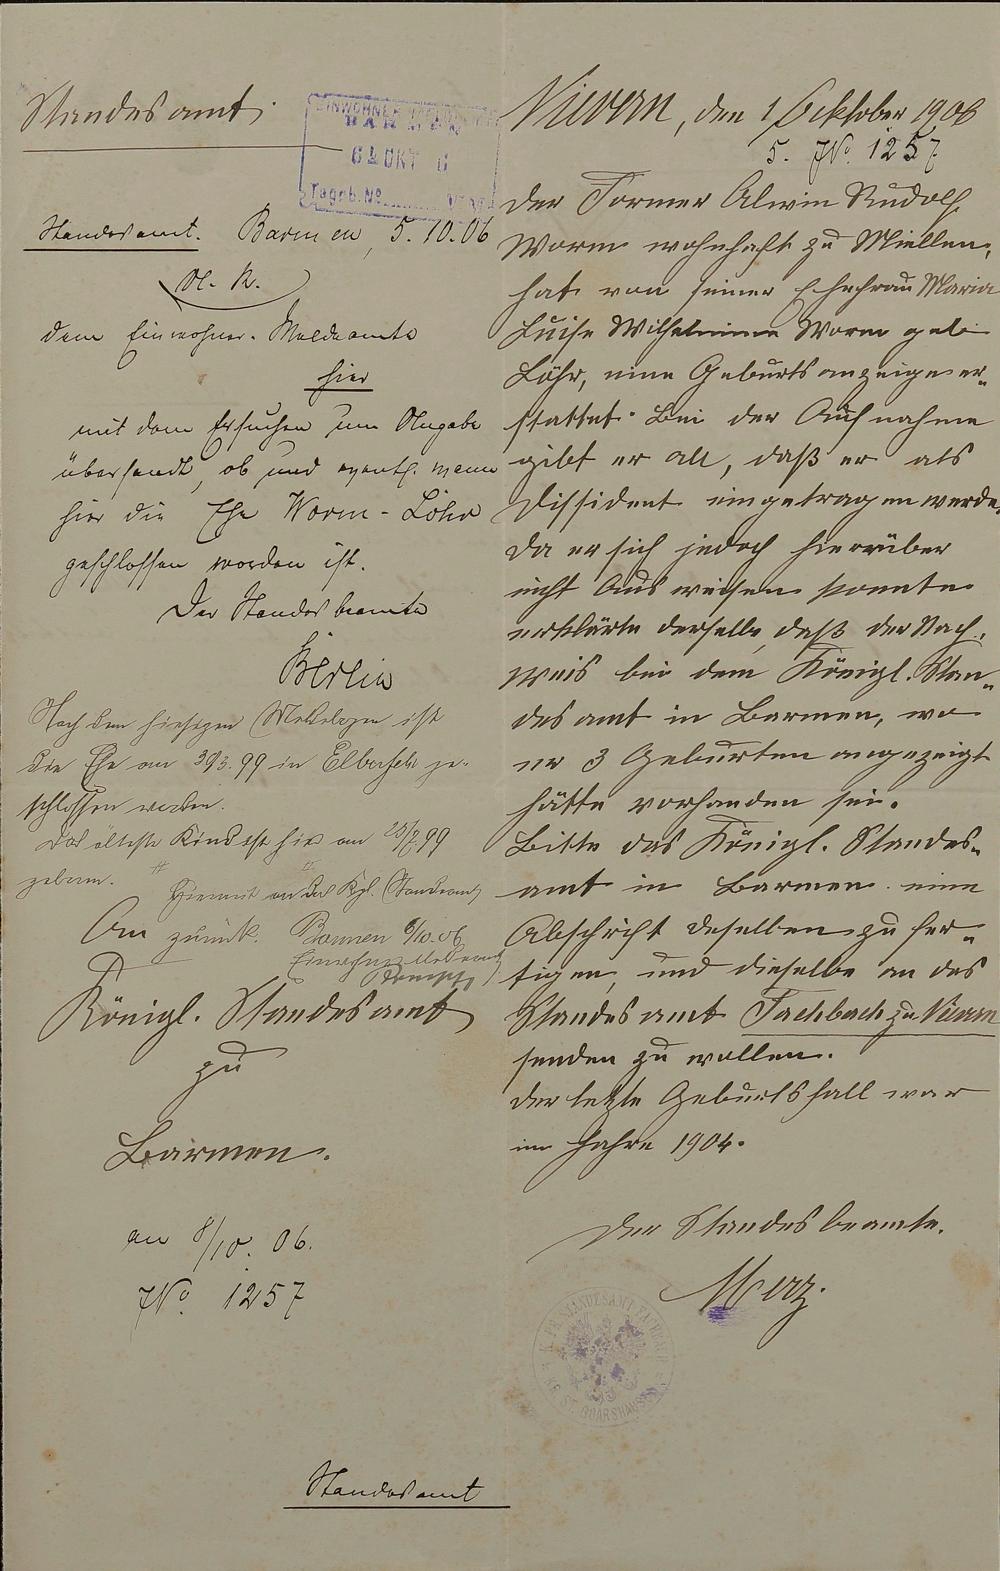 Standesamt
EINWOHNER
BARMEN
6 OKT 0
Tageb. No.
Standesamt. Barmen, 5.10.06
U. R.
dem Einwohner-Meldeamte
hier
mit dem Ersuchen um Angabe
übersandt, ob und eventl. wann
hier die Ehe Worm-Löhr
geschlossen worden ist.
Der Standesbeamte
Nach den hiesigen Meldebogen ist
die Ehe am 30/3.99 in Elberfeld ge-
schlossen worden.
Das älteste Kind ist hier am 25/7.99
geboren.
Hiermit an das Kgl. Standesamt
zurück. Barmen 6/10.06
Einwohnermeldeamt
An
Königl. Standesamt
zu
Barmen.
an 8/10. 06.
No. 1257
Standesamt
Nievern, den 1 Ocktober 1906
5. No. 1257
Der Former Alwin Rudolf
Worm wohnhaft zu Miellen,
hat von seiner Ehefrau Maria
Luise Wilhelmine Worm geb.
Löhr, eine Geburtsanzeige er-
stattet. Bei der Aufnahme
gibt er an, daß er als
Dissident eingetragen werde.
Da er sich jedoch hierrüber
nicht Ausweisen konnte
erklärte derselbe, daß der Nach-
weis bei dem Königl. Stan-
desamt in Barmen, wo
er 3 Geburten angezeigt
hätte vorhanden sei.
Bitte das Königl. Standes-
amt in Barmen eine
Abschrift deselben zu fer-
tigen, und dieselbe an das
Standesamt Fachbach zu Nievern
senden zu wollen.
Der letzte Geburtsfall war
im Jahre 1904.
Der Standesbeamte.
Merz.
K. PR. STANDESAMT FACHBACH
KR. ST. GOARSHAUSEN